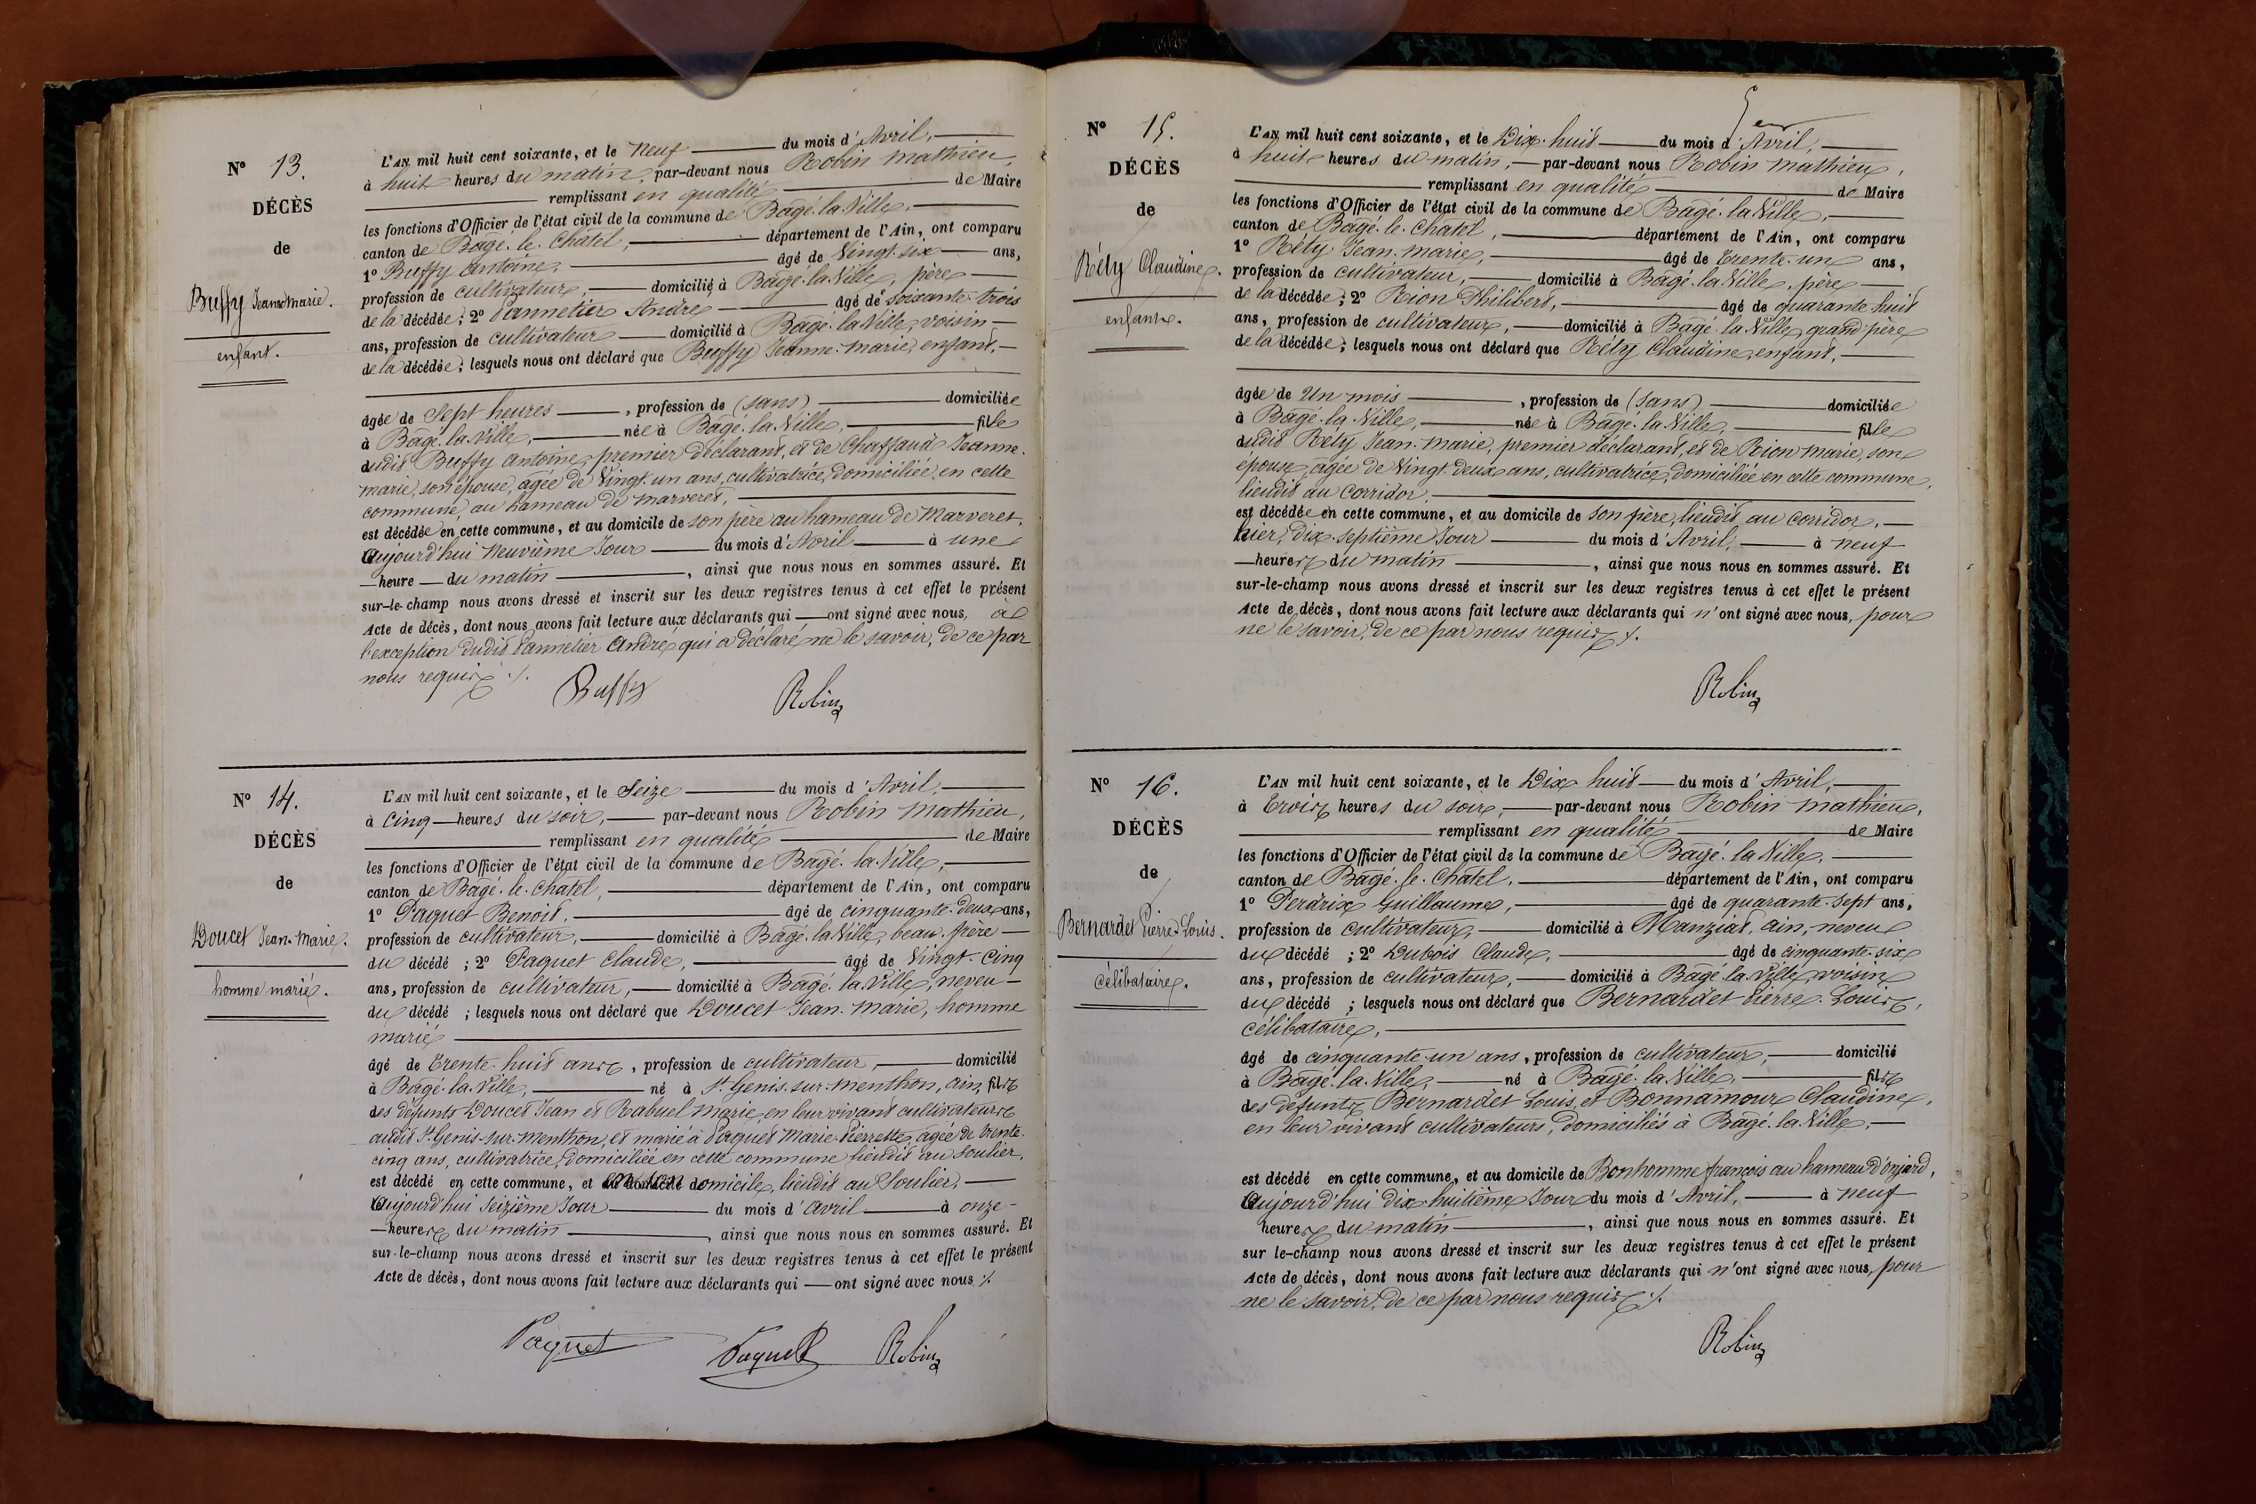 N° 13.
DÉCÈS
de
Buffy Jeanne marie.
enfant.
L'AN mil huit cent soixante, et le neuf du mois d'Avril,
à huit heures du matin, par-devant nous Robin mathieu,
remplissant en qualité de Maire
les fonctions d'Officier de l'état civil de la commune de Bâgé-la-Ville,
canton de Bâgé-le-Châtel, département de l'Ain, ont comparu
1° Buffy antoine, âgé de Vingt-six ans,
profession de cultivateur, domicilié à Bâgé-la-Ville, père
de la décédée ; 2° Pannetier André âgé de soixante-trois
ans, profession de cultivateur domicilié à Bâgé-la-Ville, voisin
de la décédée ; lesquels nous ont déclaré que Buffy Jeanne-marie, enfant,
âgée de Sept heures , profession de (sans) domiciliée
à Bâgé-la-Ville, née à Bâgé-la-Ville, fille
dudit Buffy antoine, premier déclarant, et de Chaffaud Jeanne-
marie, son épouse, agée de Vingt-un ans, cultivatrice, domiciliée en cette
commune, au hameau de marveret,
est décédée en cette commune, et au domicile de son père au hameau de Marveret,
aujourd'hui neuvième Jour du mois d'Avril à une
heure du matin , ainsi que nous nous en sommes assuré. Et
sur-le-champ nous avons dressé et inscrit sur les deux registres tenus à cet effet le présent
Acte de décès, dont nous avons fait lecture aux déclarants qui ont signé avec nous, à
l'exception dudit Pannetier André, qui a déclaré ne le savoir, de ce par
nous requis ./.
Buffy Robin
N° 14.
DÉCÈS
de
Doucet Jean-Marie.
homme marié.
L'AN mil huit cent soixante, et le Seize du mois d'Avril,
à cinq heures du soir, par-devant nous Robin mathieu,
remplissant en qualité de Maire
les fonctions d'Officier de l'état civil de la commune de Bâgé-la-Ville,
canton de Bâgé-le-Châtel, département de l'Ain, ont comparu
1° Paquet Benoit, âgé de cinquante-deux ans,
profession de cultivateur, domicilié à Bâgé-la-Ville, beau-frère
du décédé ; 2° Paquet Claude, âgé de Vingt-cinq
ans, profession de cultivateur, domicilié à Bâgé-la-Ville, neveu
du décédé ; lesquels nous ont déclaré que Doucet Jean-Marie, homme
marié
âgé de trente-huit ans, profession de cultivateur, domicilié
à Bâgé-la-Ville, né à St. Genis-sur-menthon, ain, fils
des défunts Doucet Jean et Rabuel marie, en leur vivant cultivateurs
audit St. Genis-sur-menthon, et marié à Paquet Marie-Pierrette, agée de trente-
cinq ans, cultivatrice, domiciliée en cette commune lieudit au Soulier,
est décédé en cette commune, et domicile, lieudit au Soulier,
aujourd'hui Seizième Jour du mois d'avril à onze
heures du matin , ainsi que nous nous en sommes assuré. Et
sur-le-champ nous avons dressé et inscrit sur les deux registres tenus à cet effet le présent
Acte de décès, dont nous avons fait lecture aux déclarants qui ont signé avec nous ./.
Paquet Paquet Robin
N° 15.
DÉCÈS
de
Réty Claudine.
enfant.
L'AN mil huit cent soixante, et le Dix-huit du mois d'Avril,
à huit heures du matin, par-devant nous Robin mathieu,
remplissant en qualité de Maire
les fonctions d'Officier de l'état civil de la commune de Bâgé-la-Ville,
canton de Bâgé-le-Châtel, département de l'Ain, ont comparu
1° Réty Jean-marie, âgé de trente-un ans,
profession de cultivateur, domicilié à Bâgé-la-Ville, père
de la décédée ; 2° Rion Philibert, âgé de quarante-huit
ans, profession de cultivateur, domicilié à Bâgé-la-Ville, grand-père
de la décédée ; lesquels nous ont déclaré que Réty Claudine, enfant,
âgée de Un mois , profession de (sans) domiciliée
à Bâgé-la-Ville, née à Bâgé-la-Ville, fille
dudit Réty Jean-marie, premier déclarant, et de Rion marie, son
épouse, agée de Vingt-deux ans, cultivatrice, domiciliée en cette commune,
lieudit au Corridor,
est décédée en cette commune, et au domicile de son père, lieudit au Corridor,
hier, dix-septième Jour du mois d'Avril, à neuf
heures du matin , ainsi que nous nous en sommes assuré. Et
sur-le-champ nous avons dressé et inscrit sur les deux registres tenus à cet effet le présent
Acte de décès, dont nous avons fait lecture aux déclarants qui n'ont signé avec nous, pour
ne le savoir, de ce par nous requis ./.
Robin
N° 16.
DÉCÈS
de
Bernardet Pierre-Louis.
célibataire.
L'AN mil huit cent soixante, et le Dix-huit du mois d'Avril,
à trois heures du soir, par-devant nous Robin mathieu,
remplissant en qualité de Maire
les fonctions d'Officier de l'état civil de la commune de Bâgé-la-Ville,
canton de Bâgé-le-Châtel, département de l'Ain, ont comparu
1° Perdrix Guillaume, âgé de quarante-sept ans,
profession de cultivateur, domicilié à Manziat, ain, neveu
du décédé ; 2° Dubois Claude, âgé de cinquante-six
ans, profession de cultivateur, domicilié à Bâgé-la-Ville, voisin
du décédé ; lesquels nous ont déclaré que Bernardet Pierre-Louis,
célibataire,
âgé de cinquante-un ans, profession de cultivateur, domicilié
à Bâgé-la-Ville, né à Bâgé-la-Ville, fils
des défunts Bernardet Louis, et Bonnamour Claudine,
en leur vivant cultivateurs, domiciliés à Bâgé-la-Ville,
est décédé en cette commune, et au domicile de Bonhomme françois au hameau d'onjard,
aujourd'hui dix-huitième Jour du mois d'Avril, à neuf
heures du matin , ainsi que nous nous en sommes assuré. Et
sur le-champ nous avons dressé et inscrit sur les deux registres tenus à cet effet le présent
Acte de décès, dont nous avons fait lecture aux déclarants qui n'ont signé avec nous, pour
ne le savoir, de ce par nous requis ./.
Robin